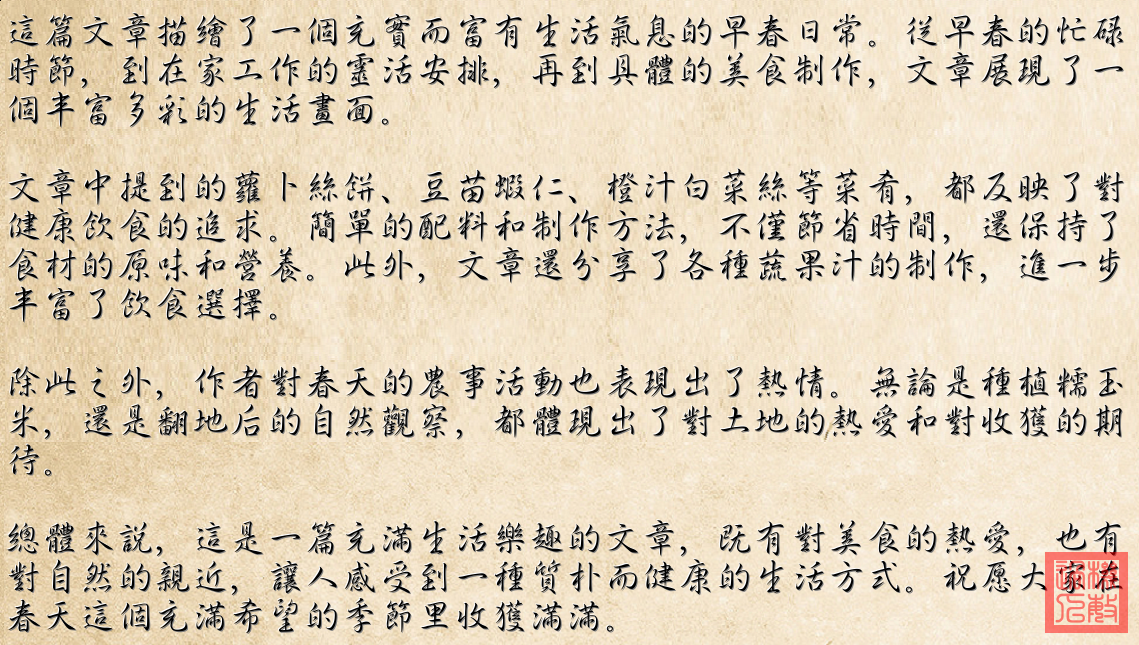 這篇文章描繪了一個充實而富有生活氣息的早春日常。從早春的忙碌
時節，到在家工作的靈活安排，再到具體的美食制作，文章展現了一
個丰富多彩的生活畫面。
文章中提到的蘿卜絲餅、豆苗蝦仁、橙汁白菜絲等菜肴，都反映了對
健康飲食的追求。簡單的配料和制作方法，不僅節省時間，還保持了
食材的原味和營養。此外，文章還分享了各種蔬果汁的制作，進一步
丰富了飲食選擇。
除此之外，作者對春天的農事活動也表現出了熱情。無論是種植糯玉
米，還是翻地后的自然觀察，都體現出了對土地的熱愛和對收獲的期
待。
總體來說，這是一篇充滿生活樂趣的文章，既有對美食的熱愛，也有
對自然的親近，讓人感受到一種質朴而健康的生活方式。祝愿大家在
春天這個充滿希望的季節里收獲滿滿。